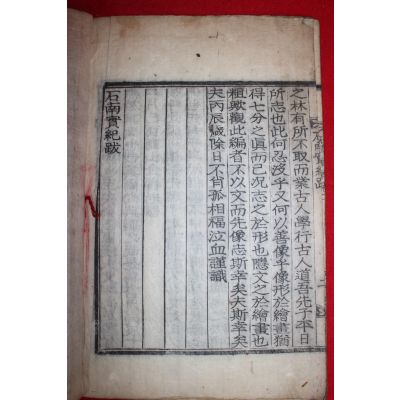 之林有所不取而業古人學行古人道吾先子平日
所志也此何忍沒乎又何以善像乎像形於繪畫猶
得七分之眞而已况志之於形也應文之於繪畫也
粗歟觀此編者不以文而先像志斯幸矣夫斯幸矣
夫丙辰歲除日不肖孤相福泣血謹識
石南實紀跋